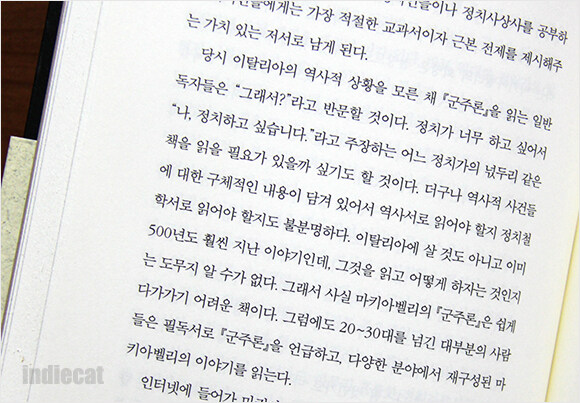 들에게는 가장 적절한 교과서이자 근본 전제를 제시해주
는 가치 있는 저서로 남게 된다.
당시 이탈리아의 역사적 상황을 모른 채 『군주론』을 읽는 일반
독자들은 “그래서?”라고 반문할 것이다. 정치가 너무 하고 싶어서
“나, 정치하고 싶습니다.”라고 주장하는 어느 정치가의 넋두리 같은
책을 읽을 필요가 있을까 싶기도 할 것이다. 더구나 역사적 사건들
에 대한 구체적인 내용이 담겨 있어서 역사서로 읽어야 할지 정치철
학서로 읽어야 할지도 불분명하다. 이탈리아에 살 것도 아니고 이미
500년도 훨씬 지난 이야기인데, 그것을 읽고 어떻게 하자는 것인지
는 도무지 알 수가 없다. 그래서 사실 마키아벨리의 『군주론』은 쉽게
다가가기 어려운 책이다. 그럼에도 20~30대를 넘긴 대부분의 사람
들은 필독서로 『군주론』을 언급하고, 다양한 분야에서 재구성된 마
키아벨리의 이야기를 읽는다.
인터넷에 들어가
indiecat